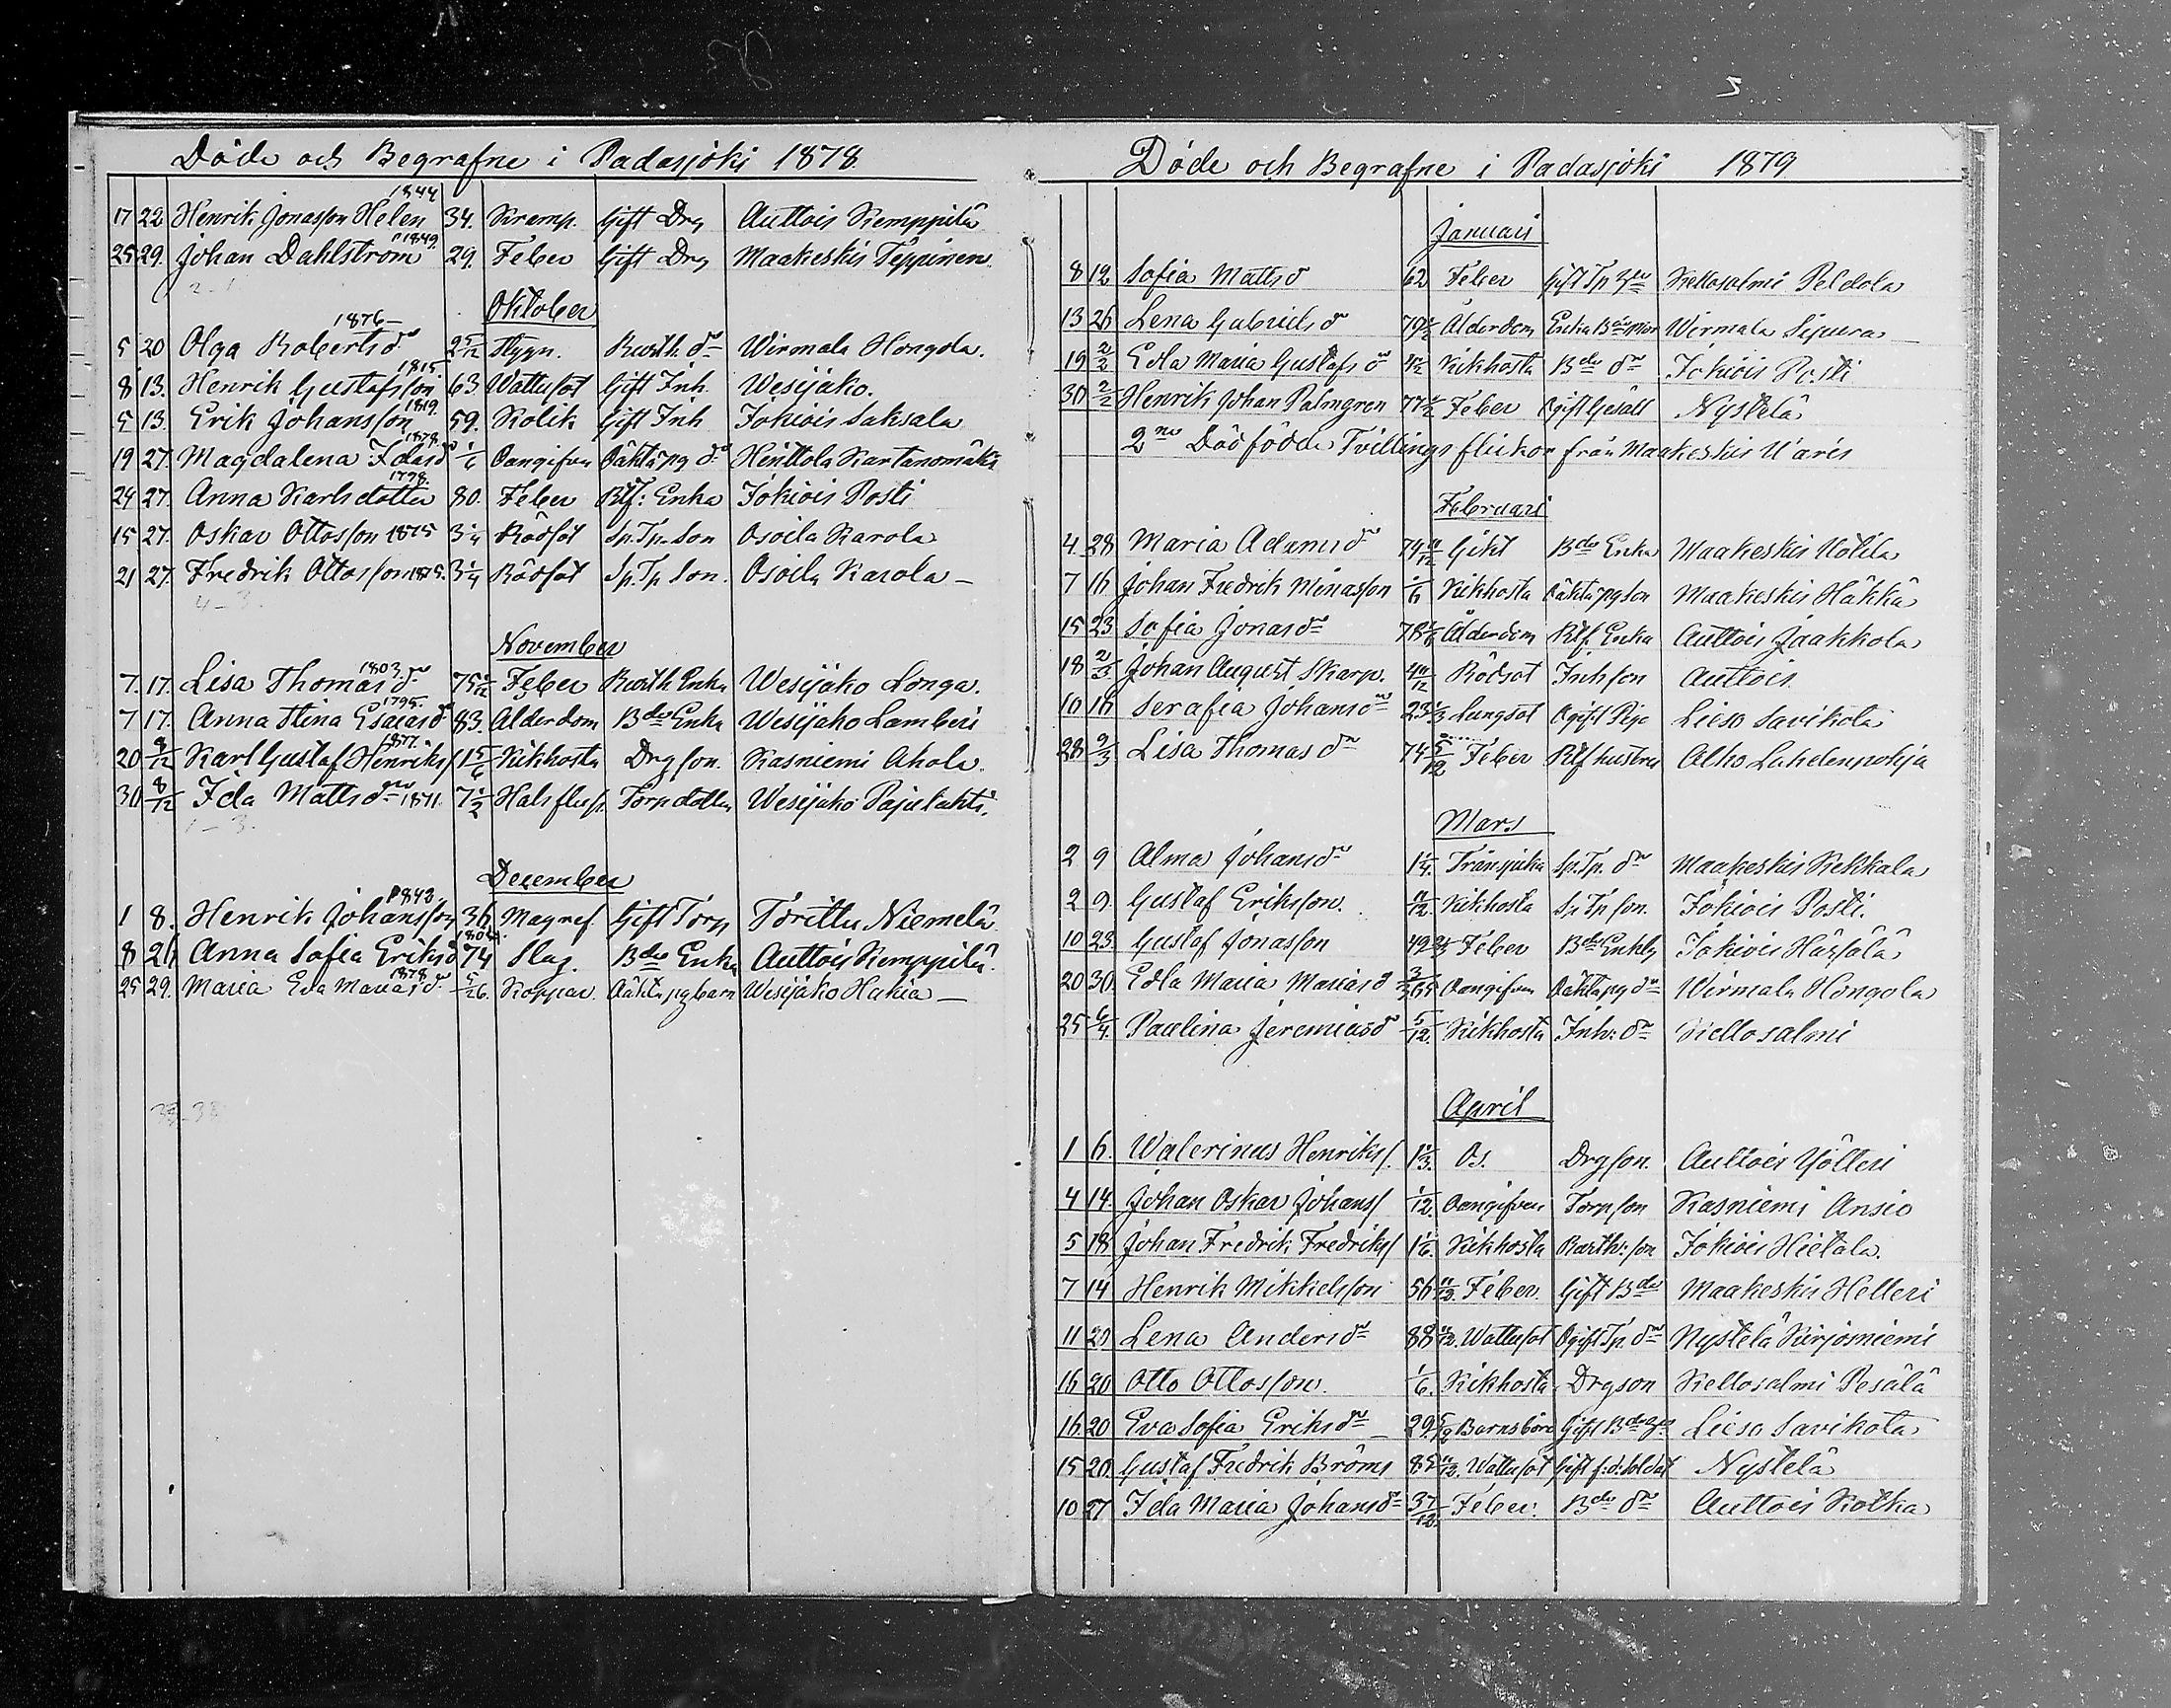 Döde och Begrafne i Padasjoki 1878
1844
17 22 Henrik Jonasson Helen 34. Kramp. Gift Drg Auttois Kemppilä
1849.
25 29. Johan Dahlström 29. Feber Gift Drg Maakeskis Teppinen.
2-1
Oktober
1876
5 20 Olga Robertsdr 2 5/12 Flygn. Bwth. dr Wirmala Hongola.
1815.
8 13. Henrik Gustafsson 63 Wattusot Gift Inh. Wesijako.
1819.
5 13. Erik Johansson 59. Kolik Gift Inh Jokiois Saksala
1878.
19 27. Magdalena Idasdr 1/6 Oangifven Oäkta pg dr Henttola Kartanomäki
1798.
24 27. Anna Karlsdotter 80. Feber Rtf: Enka Jokiois Posti
15 27. Oskar Ottosson 1875 3 1/4 Rödsot Sp. Tp. Son Osoila Karola
21 27. Fredrik Ottosson 1875. 3 1/4 Rödsot Sp. Tp Son. Osoila Karola
4-3.
November
1803.
7. 17. Lisa Thomasdr 75 Feber Bwth Enka Wesijako Longa.
1795.
7 17. Anna Stina Esaiasdr 83. Ålderdom Bde Enka Wesijako Lamberi
1877.
20 8/12 Karl Gustaf Henriks 1 5/6 Kikhosta Drg son. Kasniemi Ahola.
30 8/12 Ida Mattsdr 1871. 7 1/2 Halsfluss. Torp dotter Wesijako Pajulahti.
1-3.
December
1842
1 8. Henrik Johansson 36 Magref Gift Torp Torittu Niemelä
1804.
8 26 Anna Sofia Eriksd 74 Slag. Bde Enka Auttois Kemppilä.
1878.
25 29. Maria Eva Mariasdr 5/26. Koppor. Oäkta pg barn Wesijako Hakia
Döde och Begrafne i Padasjoki 1879
Januari
8 12 Sofia Mattsd 62 Feber Gift Tp Kellosalmi Peldola
13 26 Lena Gabrielsd 79 1/2 Ålderdom Enka Wirmala Sipura
19 2/2 Edla Maria Gustafsdr Kikhosta Bde dr Jokiois Posti
30 2/2 Henrik Johan Palmgren 77 1/2 Feber Ogift Gesäll Nystelä
2ne Dödfödde Tvillings flickor från Maakeskis Uaris
Februari
4 28 Maria Adamsdr 74 Gikt Bde Enka Maakeskis Uotila
7 16 Johan Fredrik Minasson 1/6 Kikhosta Oäkta pg son Maakeskis Häkkä
15 23 Sofia Jonasdr 78 1/6 Ålderdom Rtf. Enka Auttois Jaakkola
18 2/3 Johan August Skarp. 4 11/12 Rödsot Inh son Auttois.
10 16 Serafia Johansdr 23 1/3 Lungsot Ogift Piga Lieso Savikota
28 9/3 Lisa Thomasdr 74 5/12 Feber Rtf hustru Alho Lahdenpohja
Mars
2 9 Alma Johansdr 1 1/4. Trånsjuka Sp. Tp. dr Maakeskis Kekkala
2 9. Gustaf Eriksson. 11/12. Kikhosta Sp Tp son. Jokiois Posti.
10 23. Gustaf Jonasson 49 Feber Bde Enkl. Jokiois Härsälä
20 30. Edla Maria Mariasd 3/365 Oangifven Oäkta pg dr Wirmala Hongola
25 6/4. Paulina Jeremiasd 5/12. Kikhosta Inh: dr Kellosalmi
April
1 6. Walerinus Henriks. 1 1/3. Os. Drg son. Auttois Yötteri
4 14. Johan Oskar Johans 1/12. Oangifven Torp son Kasniemi Ansio
5 18 Johan Fredrik Fredriks 1 1/6. Kikhosta Bwth: son Jokiois Hietala.
7 14 Henrik Mikkelsson 56 Feber. Gift Bde Maakeskis Helleri
11 29 Lena Andersdr 88 Wattusot Ogift Tp dr Nystelä Kirjosniemi
16 20 Otto Ottosson. 1/6. Kikhosta Drg son Kellosalmi Pesälä
16. 20 Eva Sofia Eriksdr 29. Barnsbörd Gift Bde Lieso Savikota
15 20. Gustaf Fredrik Bröms 85 Wattusot Gift f:d: soldat Nystelä
10 27 Ida Maria Johansdr 3 7/12. Feber. Bde dr Auttois Kotka